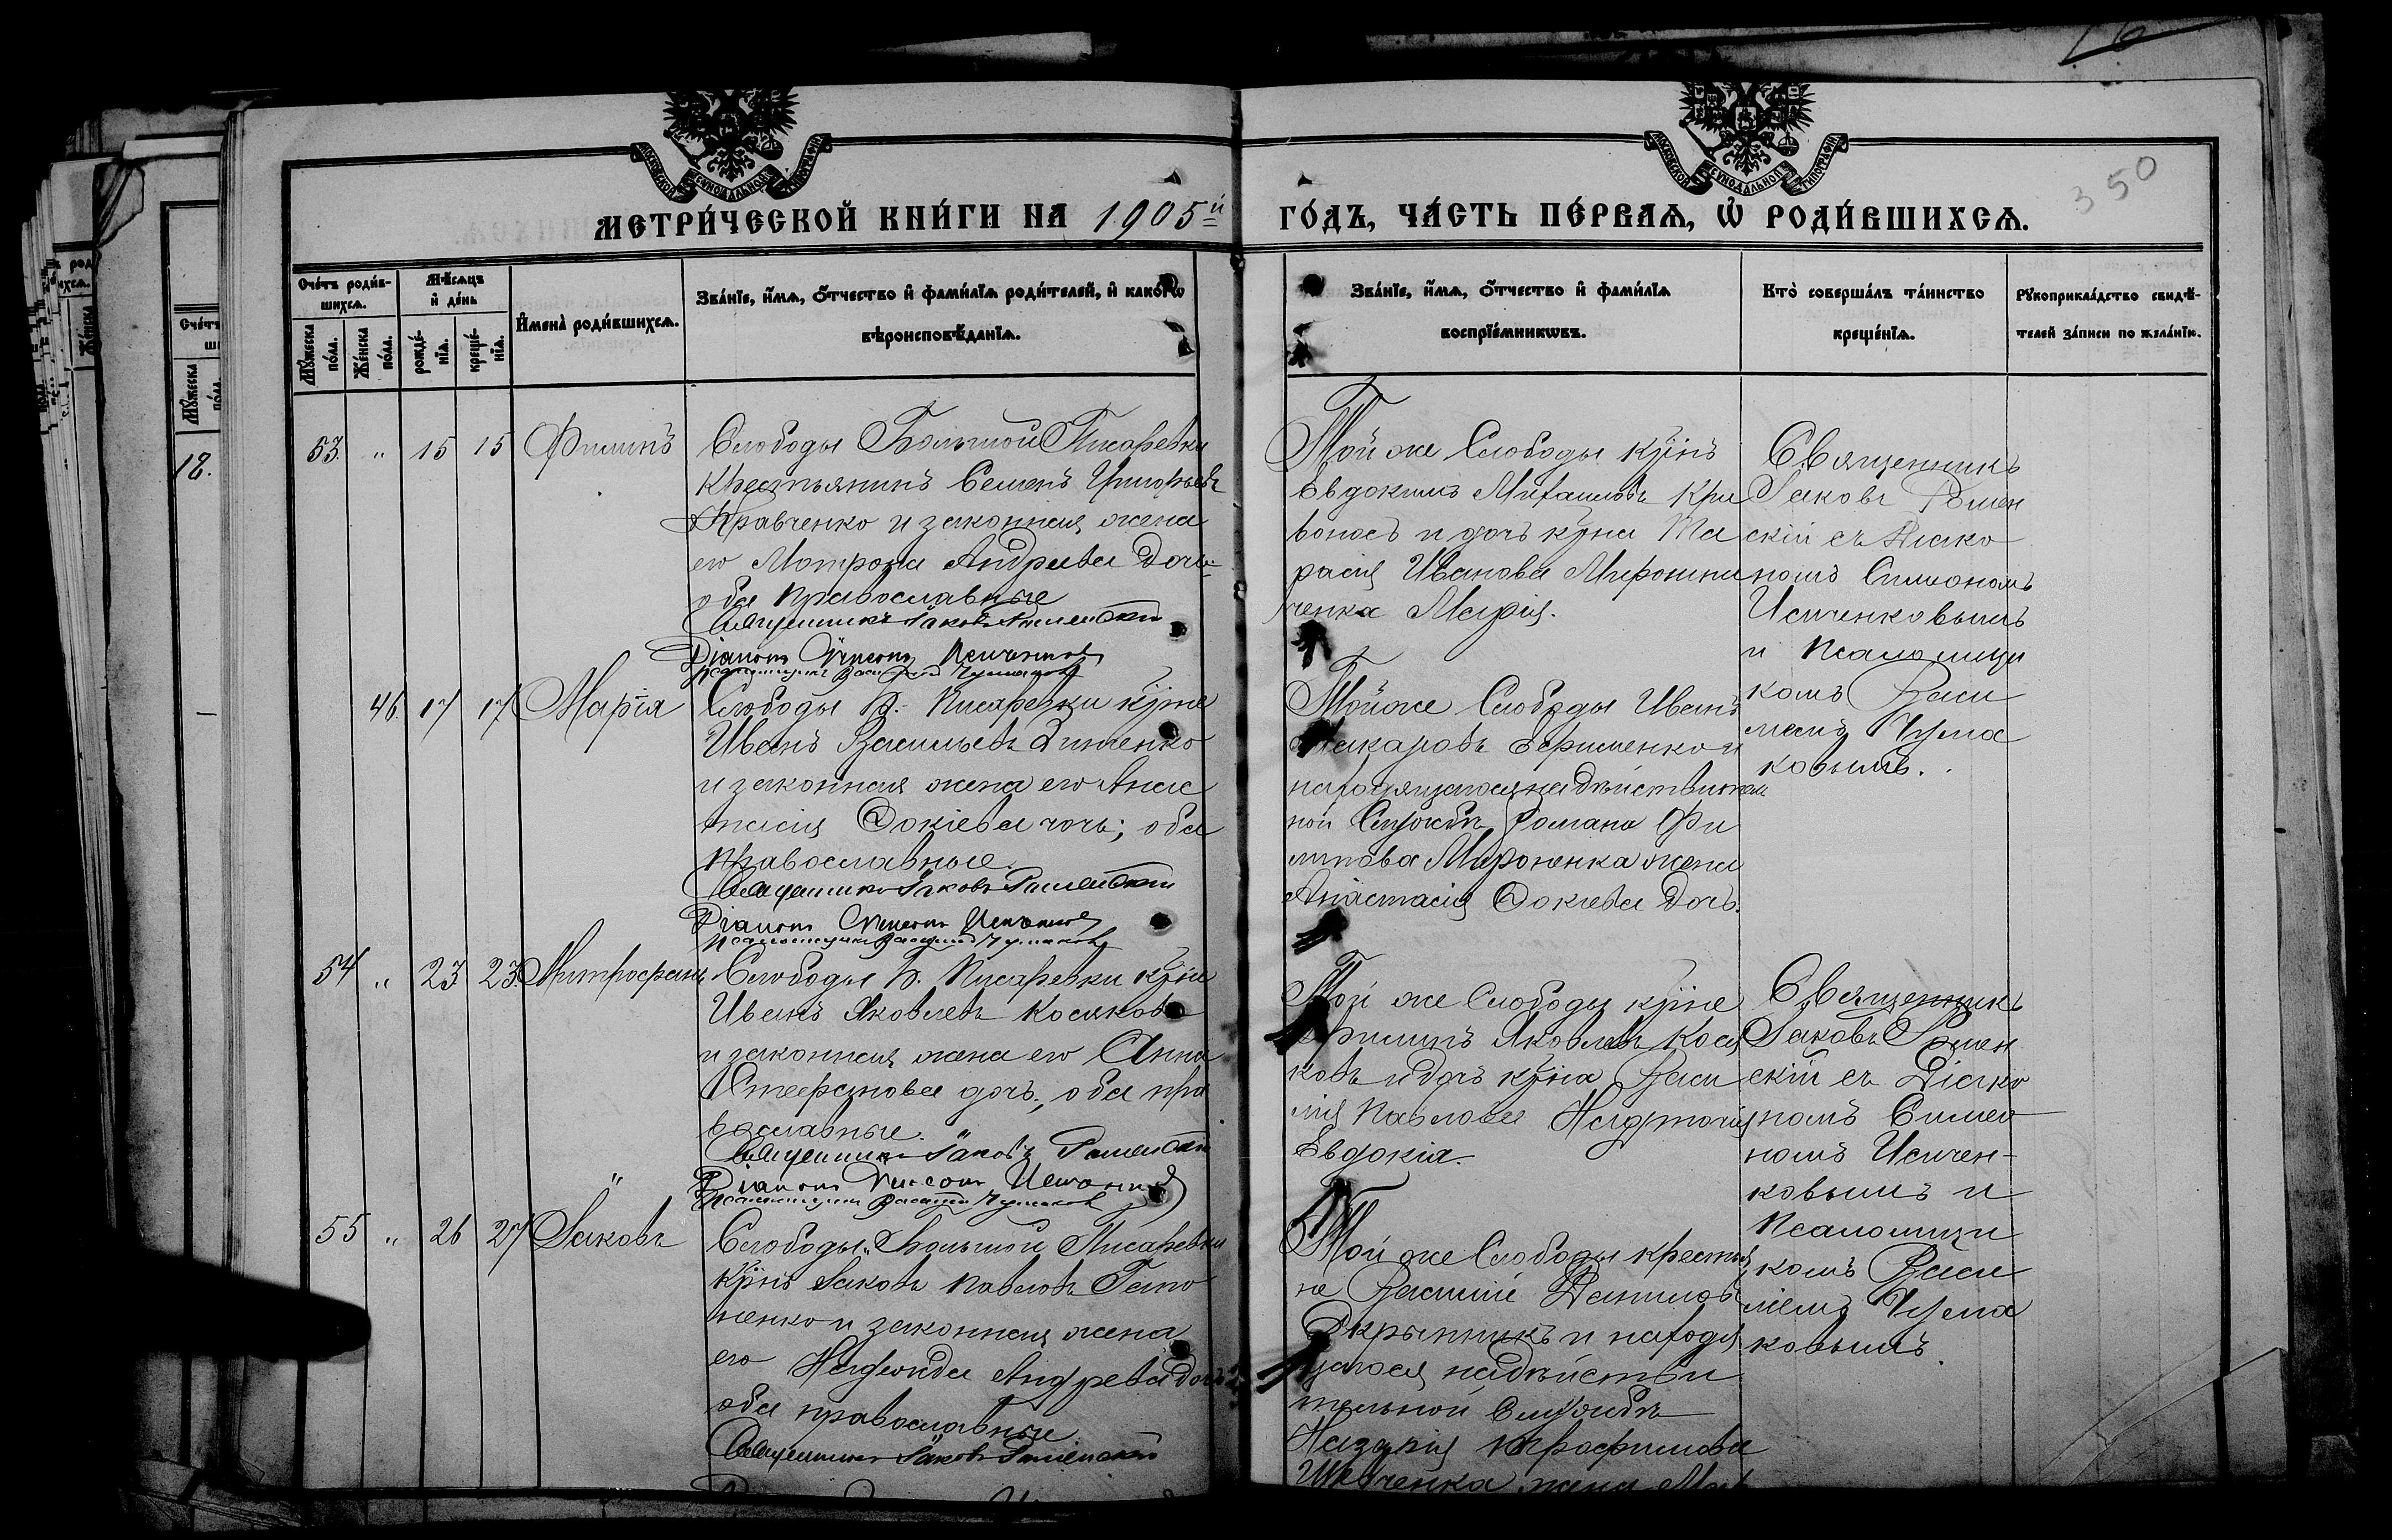 16
350
МОСКОВСКОЙ СѴНОДАЛЬНОЙ ТИПОГРАФІИ
МОСКОВСКОЙ СѴНОДАЛЬНОЙ ТИПОГРАФІИ
МЕТРИ́ЧЕСКОЙ КНИ́ГИ НА 1905й
ГО́ДЪ, ЧА́СТЬ ПЕ́РВАѦ, Ѡ҆ РОДИ́ВШИХСѦ.
Сче́тъ роди́в-
шихсѧ.
Мѣ́сѧцъ
и҆ де́нь
Мꙋ́жеска по́ла.
Же́нска по́ла.
рожде́-нїѧ.
креще́-нїѧ.
И҆мена̀ роди́вшихсѧ.
Зва́нїе, и҆́мѧ, ѻ҆́тчество и҆ фами́лїѧ роди́телей, и҆ како́гѡ
вѣроисповѣ́данїѧ.
Зва́нїе, и҆́мѧ, ѻ҆́тчество и҆ фами́лїѧ
воспрїе́мникѡвъ.
Кто̀ соверша́лъ та́инство
креще́нїѧ.
Рꙋкоприкла́дство свидѣ́-
телей за́писи по жела́нїю.
18.
53. " 15 15 Филипъ
Слободы Большой Писаревки
крестьянинъ Семенъ Григорьевъ
Кравченко и законная жена
его Матрона Андреева дочь
оба православные
Священникъ Іаковъ Роменскій
Діаконъ Симеонъ Исиченковъ
Псаломщикъ Василій Чумаковъ
Той же Слободы кр҃інъ
Евдокимъ Михаиловъ Кри
воносъ и дочь кр҃на Та
расія Иванова Мирошни
ченка Марія.
Священникъ
Іаковъ Ромен
скій съ Діако
номъ Симеономъ
Исиченковымъ
и Псаломщи
комъ Васи
ліемъ Чума
ковымъ.
46. 17 17 Марія
Слободы Б. Писаревки кр҃не
Иванъ Васильевъ Дитченко
и законная жена его Анас
тасія Фокіева дочь; оба
православные
Священникъ Іаковъ Роменскій
Діаконъ Симеонъ Исиченковъ
Псаломщикъ Василій Чумаковъ
Той же Слободы Иванъ
Макаровъ Ефименко и
находящагося на дѣйствитель
ной Службѣ Романа Фи
липова Мироненка жена
Анастасія Фокіева дочь.
54 " 23 23 Митрофанъ
Слободы Б. Писаревки кр҃не
Иванъ Яковлевъ Косяковъ
и законная жена его Анна
Стефанова дочь, оба пра
вославные.
Священникъ Іаковъ Роменскій
Діаконъ Симеонъ Исиченковъ
Псаломщикъ Василій Чумаковъ
Той же Слободы кр҃не
Филипъ Яковлевъ Кося
ковъ и дочь кр҃на Васи
лія Павлова
Евдокія.
Священникъ
Іаковъ Ромен
скій съ Діако
номъ Симео
номъ Исичен-
ковымъ и
Псаломщи
комъ Васи
ліемъ Чума
ковымъ
55 " 26 27 Іаковъ
Слободы Большой Писаревки
кр҃нъ Іаковъ Павловъ
ненко и законная жена
его Андреева дочь
оба православные
Священникъ Іаковъ Роменскій
Той же Слободы крестья
не Василій Даниловъ
Скрынникъ и находя
щагося на дѣйстви
тельной Службѣ
Назарія Трофимова
Шевченка жена